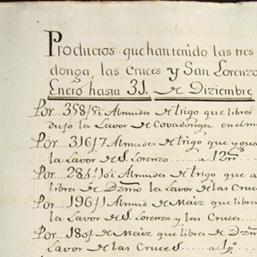 Productos que han tenido las tres
donga, las Cruces y San Lorenzo
Enero hasta 31 de Diziembre
Por 358 Almudes de trigo que libres
dujo la Lavor de Covadonga en el m
Por 316 Almudes de trigo que
la Lavor de S. Lorenzo a 12
Por 284 Almudes de trigo que a
libres de Dzmo la Lavor de las Cruces
Por 196 Almud de Maiz que libres
la Lavor de S. Lorenzo y las Cruces
Por 180 de Maiz que libres de Dzmo
Lavor de las Cruces a